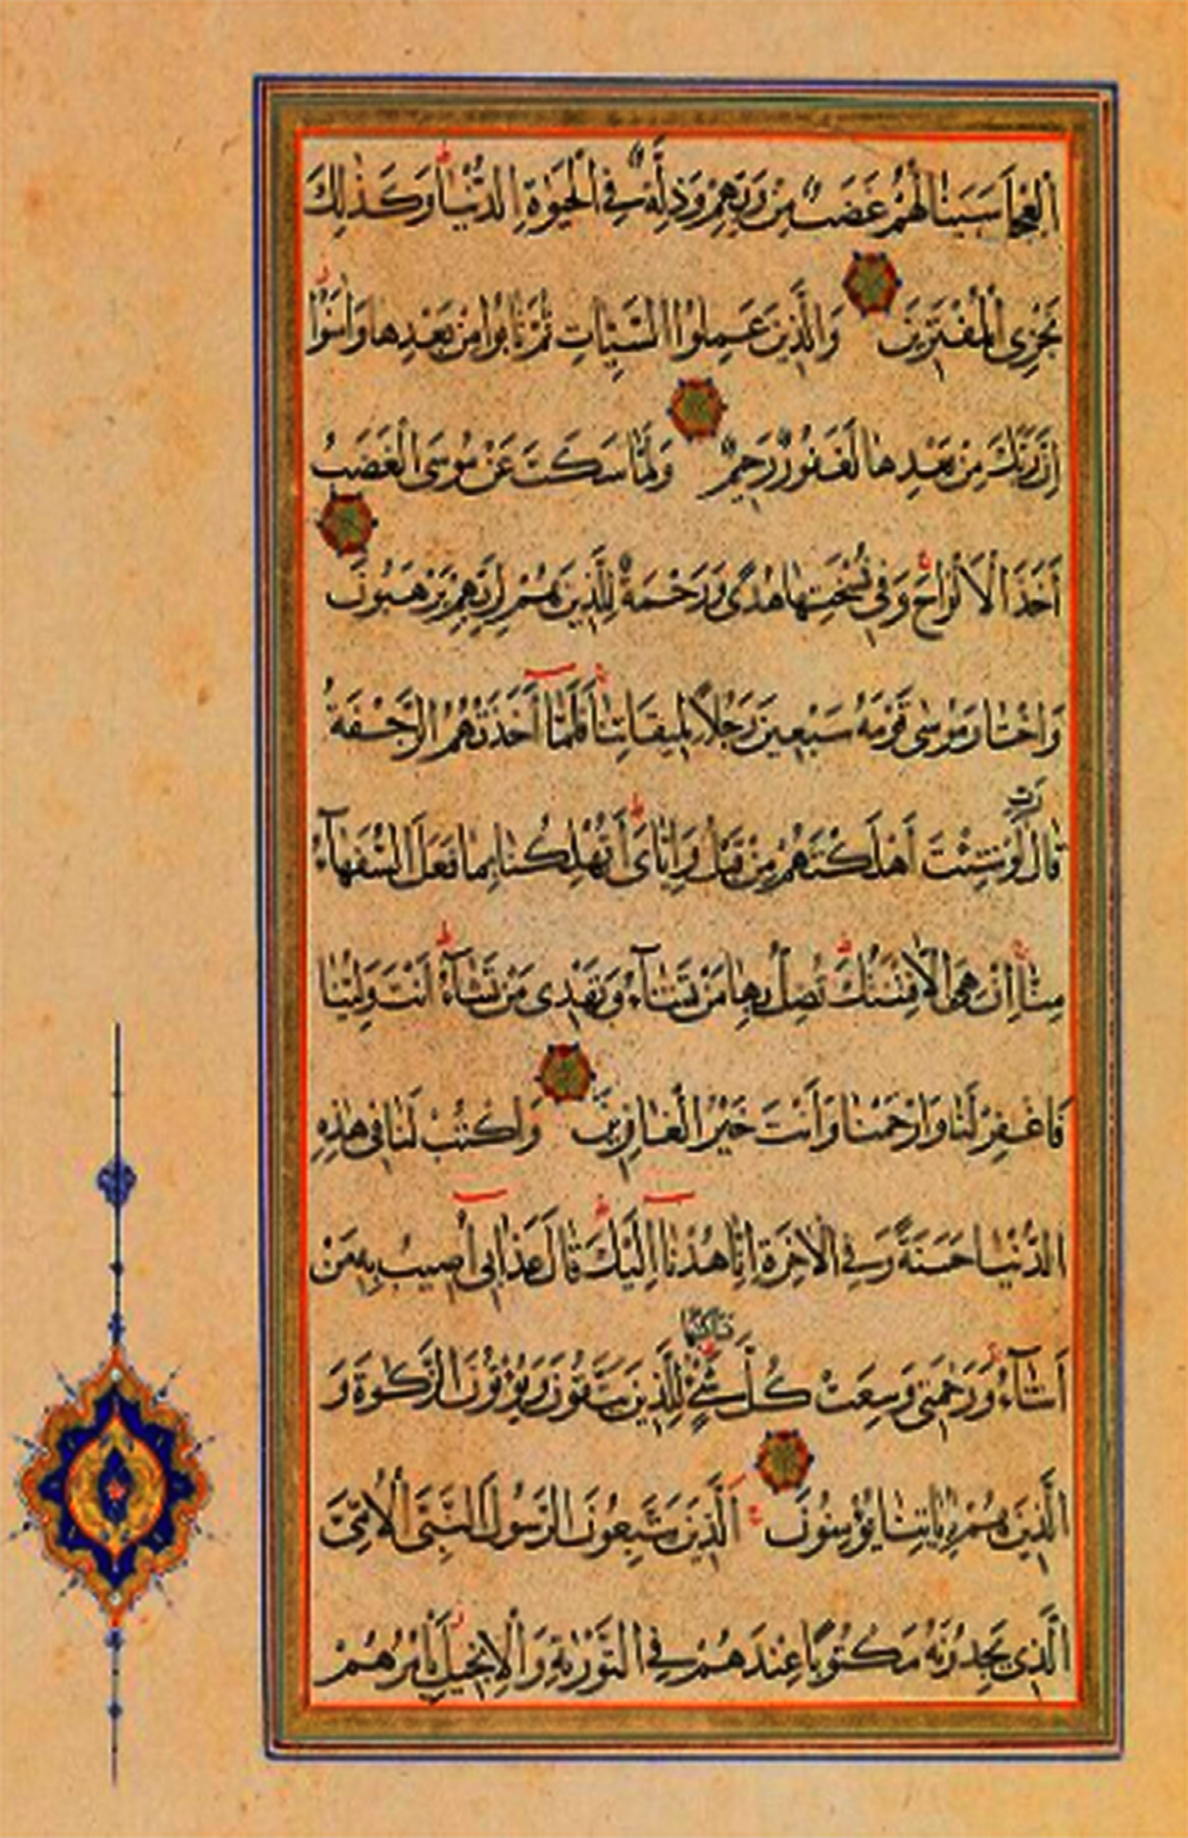 ٱلْعِجْلَ سَيَنَالُهُمْ غَضَبٌ مِنْ رَبِّهِمْ وَذِلَّةٌ فِي الْحَيٰوةِ الدُّنْيَا وَكَذٰلِكَ
نَجْزِي الْمُفْتَرِينَ وَالَّذِينَ عَمِلُوا السَّيِّاٰتِ ثُمَّ تَابُوا مِنْ بَعْدِهَا وَاٰمَنُوا
اِنَّ رَبَّكَ مِنْ بَعْدِهَا لَغَفُورٌ رَحِيمٌ وَلَمَّا سَكَتَ عَنْ مُوسَى الْغَضَبُ
أَخَذَ الْأَلْوَاحَ وَفِي نُسْخَتِهَا هُدًى وَرَحْمَةٌ لِلَّذِينَ هُمْ لِرَبِّهِمْ يَرْهَبُونَ
وَاخْتَارَ مُوسٰى قَوْمَهُ سَبْعِينَ رَجُلًا لِمِيقَاتِنَا فَلَمَّا أَخَذَتْهُمُ الرَّجْفَةُ
قَالَ رَبِّ لَوْ شِئْتَ أَهْلَكْتَهُمْ مِنْ قَبْلُ وَاِيَّايَ أَتُهْلِكُنَا بِمَا فَعَلَ السُّفَهَآءُ
مِنَّا اِنْ هِيَ اِلَّا فِتْنَتُكَ تُضِلُّ بِهَا مَنْ تَشَآءُ وَتَهْدِي مَنْ تَشَآءُ أَنْتَ وَلِيُّنَا
فَاغْفِرْ لَنَا وَارْحَمْنَا وَأَنْتَ خَيْرُ الْغَافِرِينَ وَاكْتُبْ لَنَا فِي هٰذِهِ
الدُّنْيَا حَسَنَةً وَفِي الْاٰخِرَةِ اِنَّا هُدْنَا اِلَيْكَ قَالَ عَذَابِي أُصِيبُ بِهِ مَنْ
أَشَآءُ وَرَحْمَتِي وَسِعَتْ كُلَّ شَيْءٍ فَسَأَكْتُبُهَا لِلَّذِينَ يَتَّقُونَ وَيُؤْتُونَ الزَّكٰوةَ وَ
الَّذِينَ هُمْ بِاٰيَاتِنَا يُؤْمِنُونَ اَلَّذِينَ يَتَّبِعُونَ الرَّسُولَ النَّبِيَّ الْأُمِّيَّ
الَّذِي يَجِدُونَهُ مَكْتُوبًا عِنْدَهُمْ فِي التَّوْرٰيةِ وَالْاِنْجِيلِ يَأْمُرُهُمْ